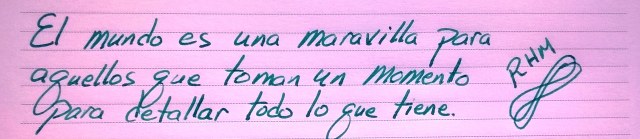 El mundo es una maravilla para
aquellos que toman un momento
para detallar todo lo que tiene.
RHM